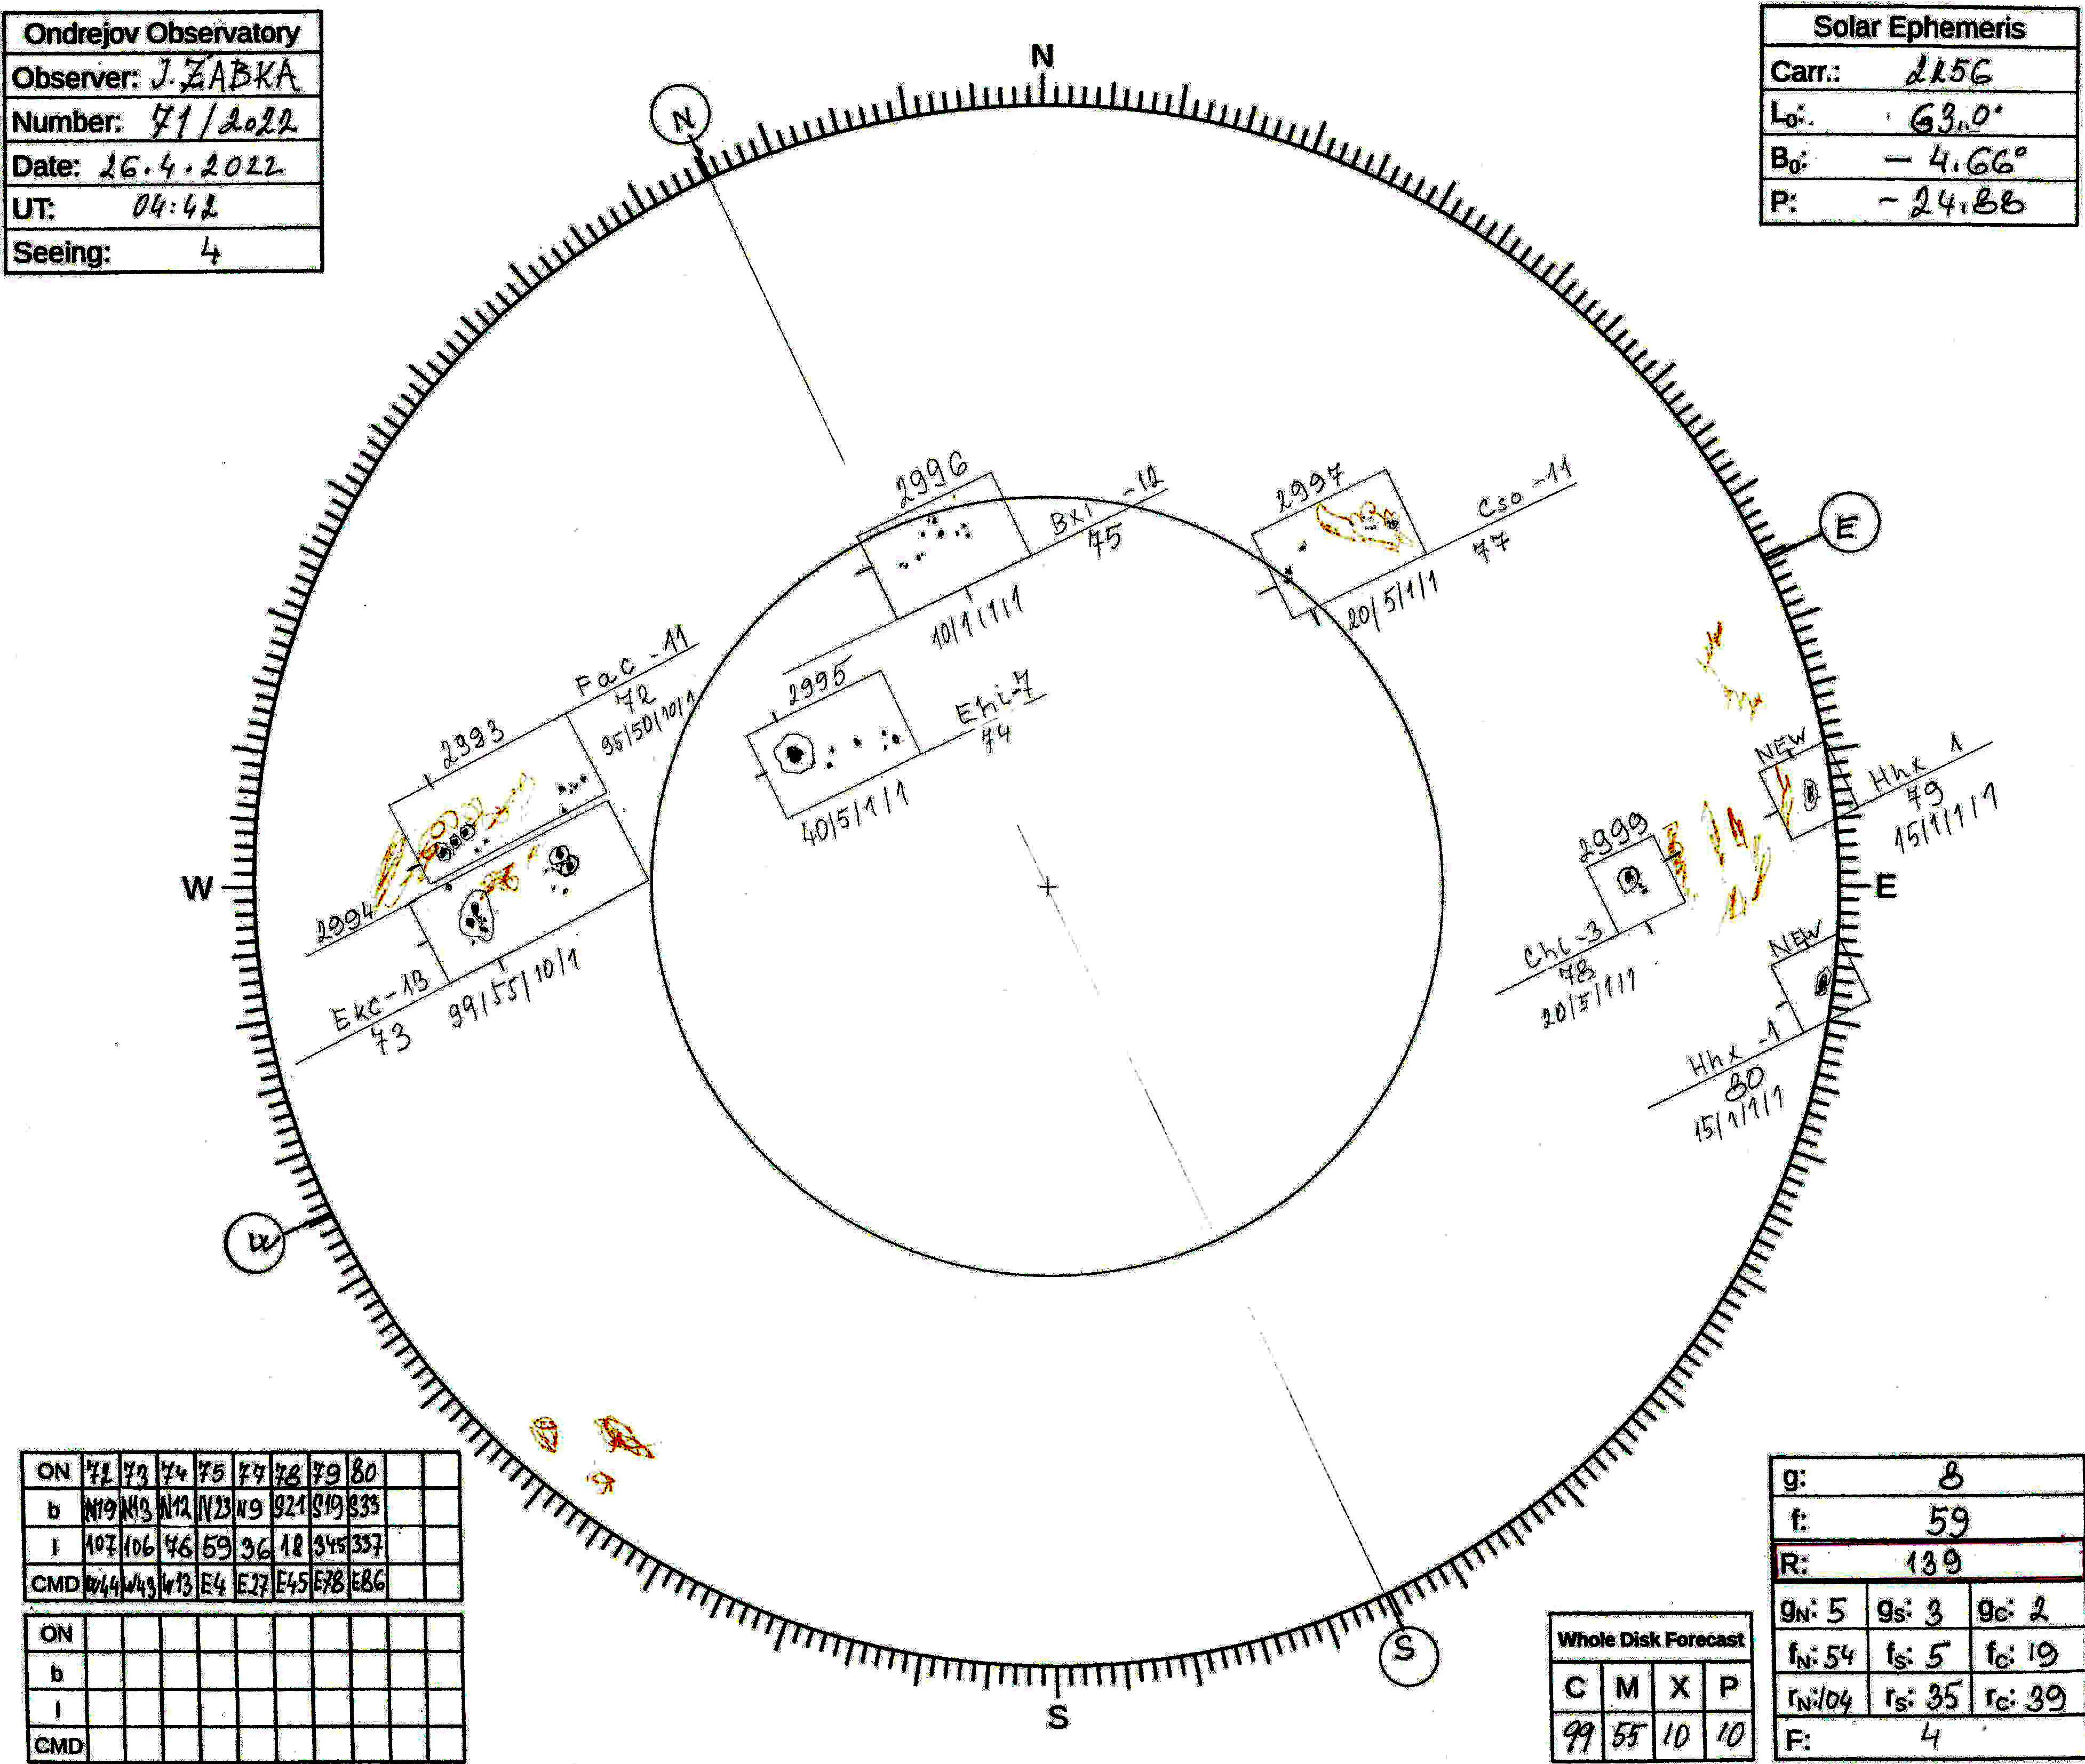 Ondrejov Observatory
Observer: J. ŽABKA
Number: 71/2022
Date: 26.4.2022
UT: 04:42
Seeing: 4
Solar Ephemeris
Carr.: 2256
L₀: 63.0°
B₀: - 4.66°
P: - 24.88
N
N
2996
Bxi -12
75
10/1/1/1
2997
Cso -11
77
20/5/1/1
E
2993
Fac -11
72
95/50/10/1
2995
Ehi-7
74
40/5/1/1
NEW
Hhx 1
79
15/1/1/1
W
E
2994
Ekc-13
73
99/55/10/1
2999
Chi -3
78
20/5/1/1
NEW
Hhx -1
80
15/1/1/1
W
ON 72 73 74 75 77 78 79 80
b N19 N13 N12 N23 N9 S21 S19 S33
l 107 106 76 59 36 18 345 337
CMD W44 W43 W13 E4 E27 E45 E78 E86
ON
b
l
CMD
S
S
Whole Disk Forecast
C M X P
99 55 10 10
g: 8
f: 59
R: 139
gN: 5 gS: 3 gC: 2
fN: 54 fS: 5 fC: 19
rN: 104 rS: 35 rC: 39
F: 4